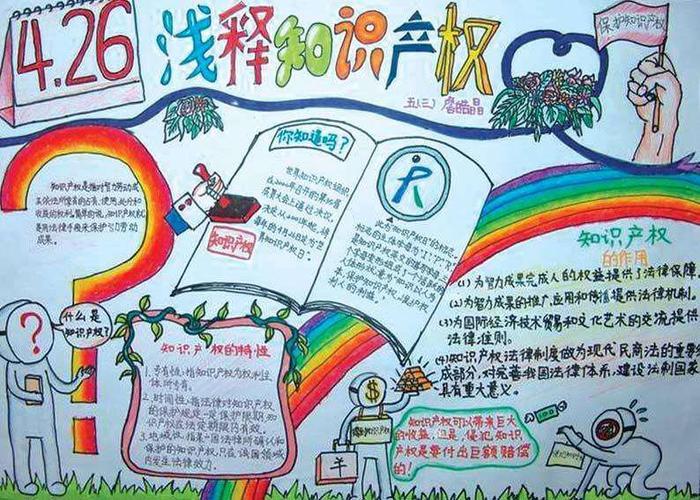 4.26
浅释知识产权
保护知识产权
五(三) 詹皓晶
知识产权是指对智力劳动成
果依法所享有的占有、使用、处分和
收益的权利。简单的说，知识产权就
是用法律手段来保护引力劳动
成果。
你知道吗？
世界知识产权组织
在2000年召开的第35届
成员大会上通过决议，
决定从2001年起，将
每年的4月26日定为"世
界知识产权日"。
知识产权
知识产权
的作用
(1)为智力成果完成人的权益提供了法律保障。
(2)为智力成果的推广应用和传播提供法律机制。
(3)为国际经济技术贸易和文化艺术的交流提供
法律准则。
(4)知识产权法律制度做为现代民商法的重要
成部分，对完善我国法律体系，建设法制国家
具有重大意义。
什么是
知识产权？
?
知识产权的特性
1.专有性：指知识产权为权利主
体所专有。
2.时间性：指法律对知识产权
的保护规定一定保护期限，知
识产权在法定期限内有效。
3.地域性：指某一国法律所确认和
保护的知识产权，只在该国领域
内发生法律效力。
$
知识产权可以带来巨大
的收益，但是，侵犯知识
产权是要付出巨额赔偿
的！